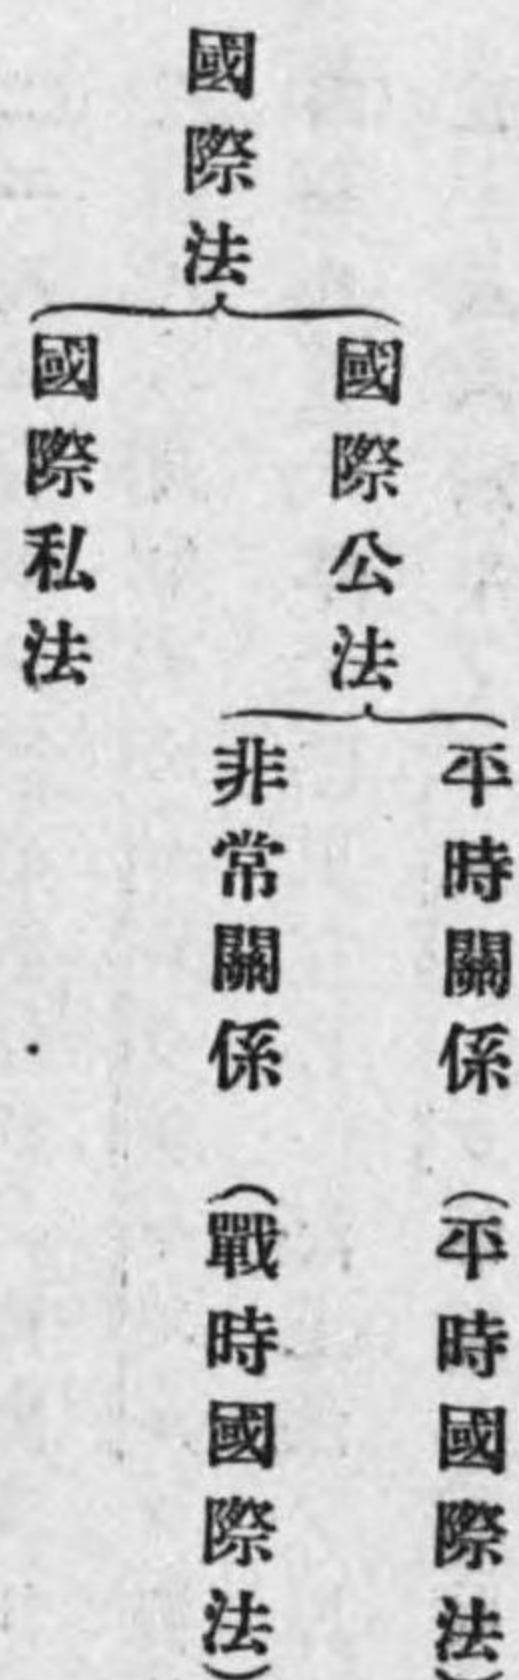 國際法
國際公法
平時關係 (平時國際法)
非常關係 (戰時國際法)
國際私法